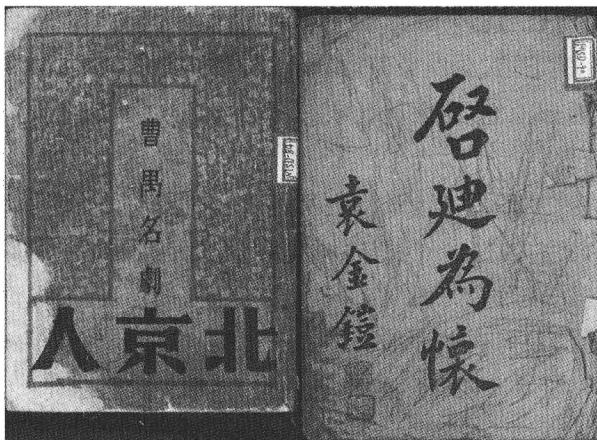 曹禺名劇
北京人
啓迪為懷
袁金鎧